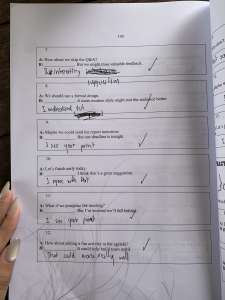 7.
A: How about we skip the Q&A?
B: But we might miss valuable feedback.
8.
A: We should use a formal design.
B: A more modern style might suit the audience better.
I understand but
9.
A: Maybe we could send the report tomorrow.
B: But our deadline is tonight.
I see your point
10.
A: Let's finish early today.
B: I think that's a great suggestion.
I agree with that
11.
A: What if we postpone the meeting?
B: But I'm worried we'll fall behind.
I see your point
12.
A: How about adding a fun activity to the agenda?
B: It could help build team spirit.
That could work really well